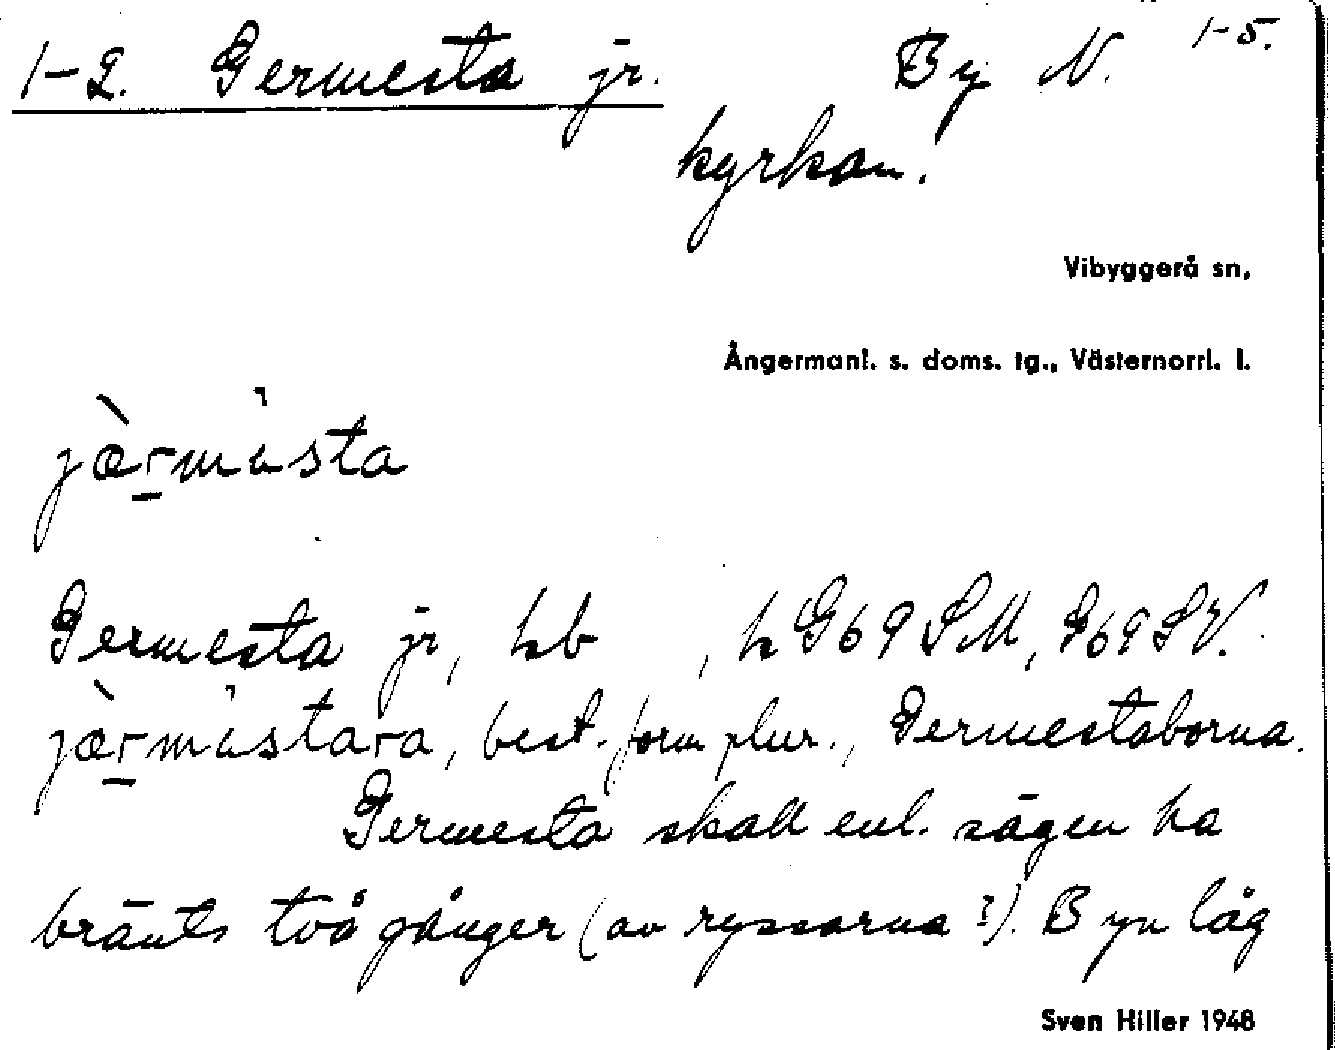 1-2. Germesta jr. By N. 1-5.
kyrkan.
Vibyggerå sn,
Ångermanl. s. doms. tg., Västernorrl. l.
jæ̀rmästa
Germesta jr, hb , h G69SM, G69SV.
jæ̀rmästara, best. form plur., Germestaborna.
Germesta skall enl. sägen ha
bränts två gånger (av ryssarna?). Byn låg
Sven Hiller 1948